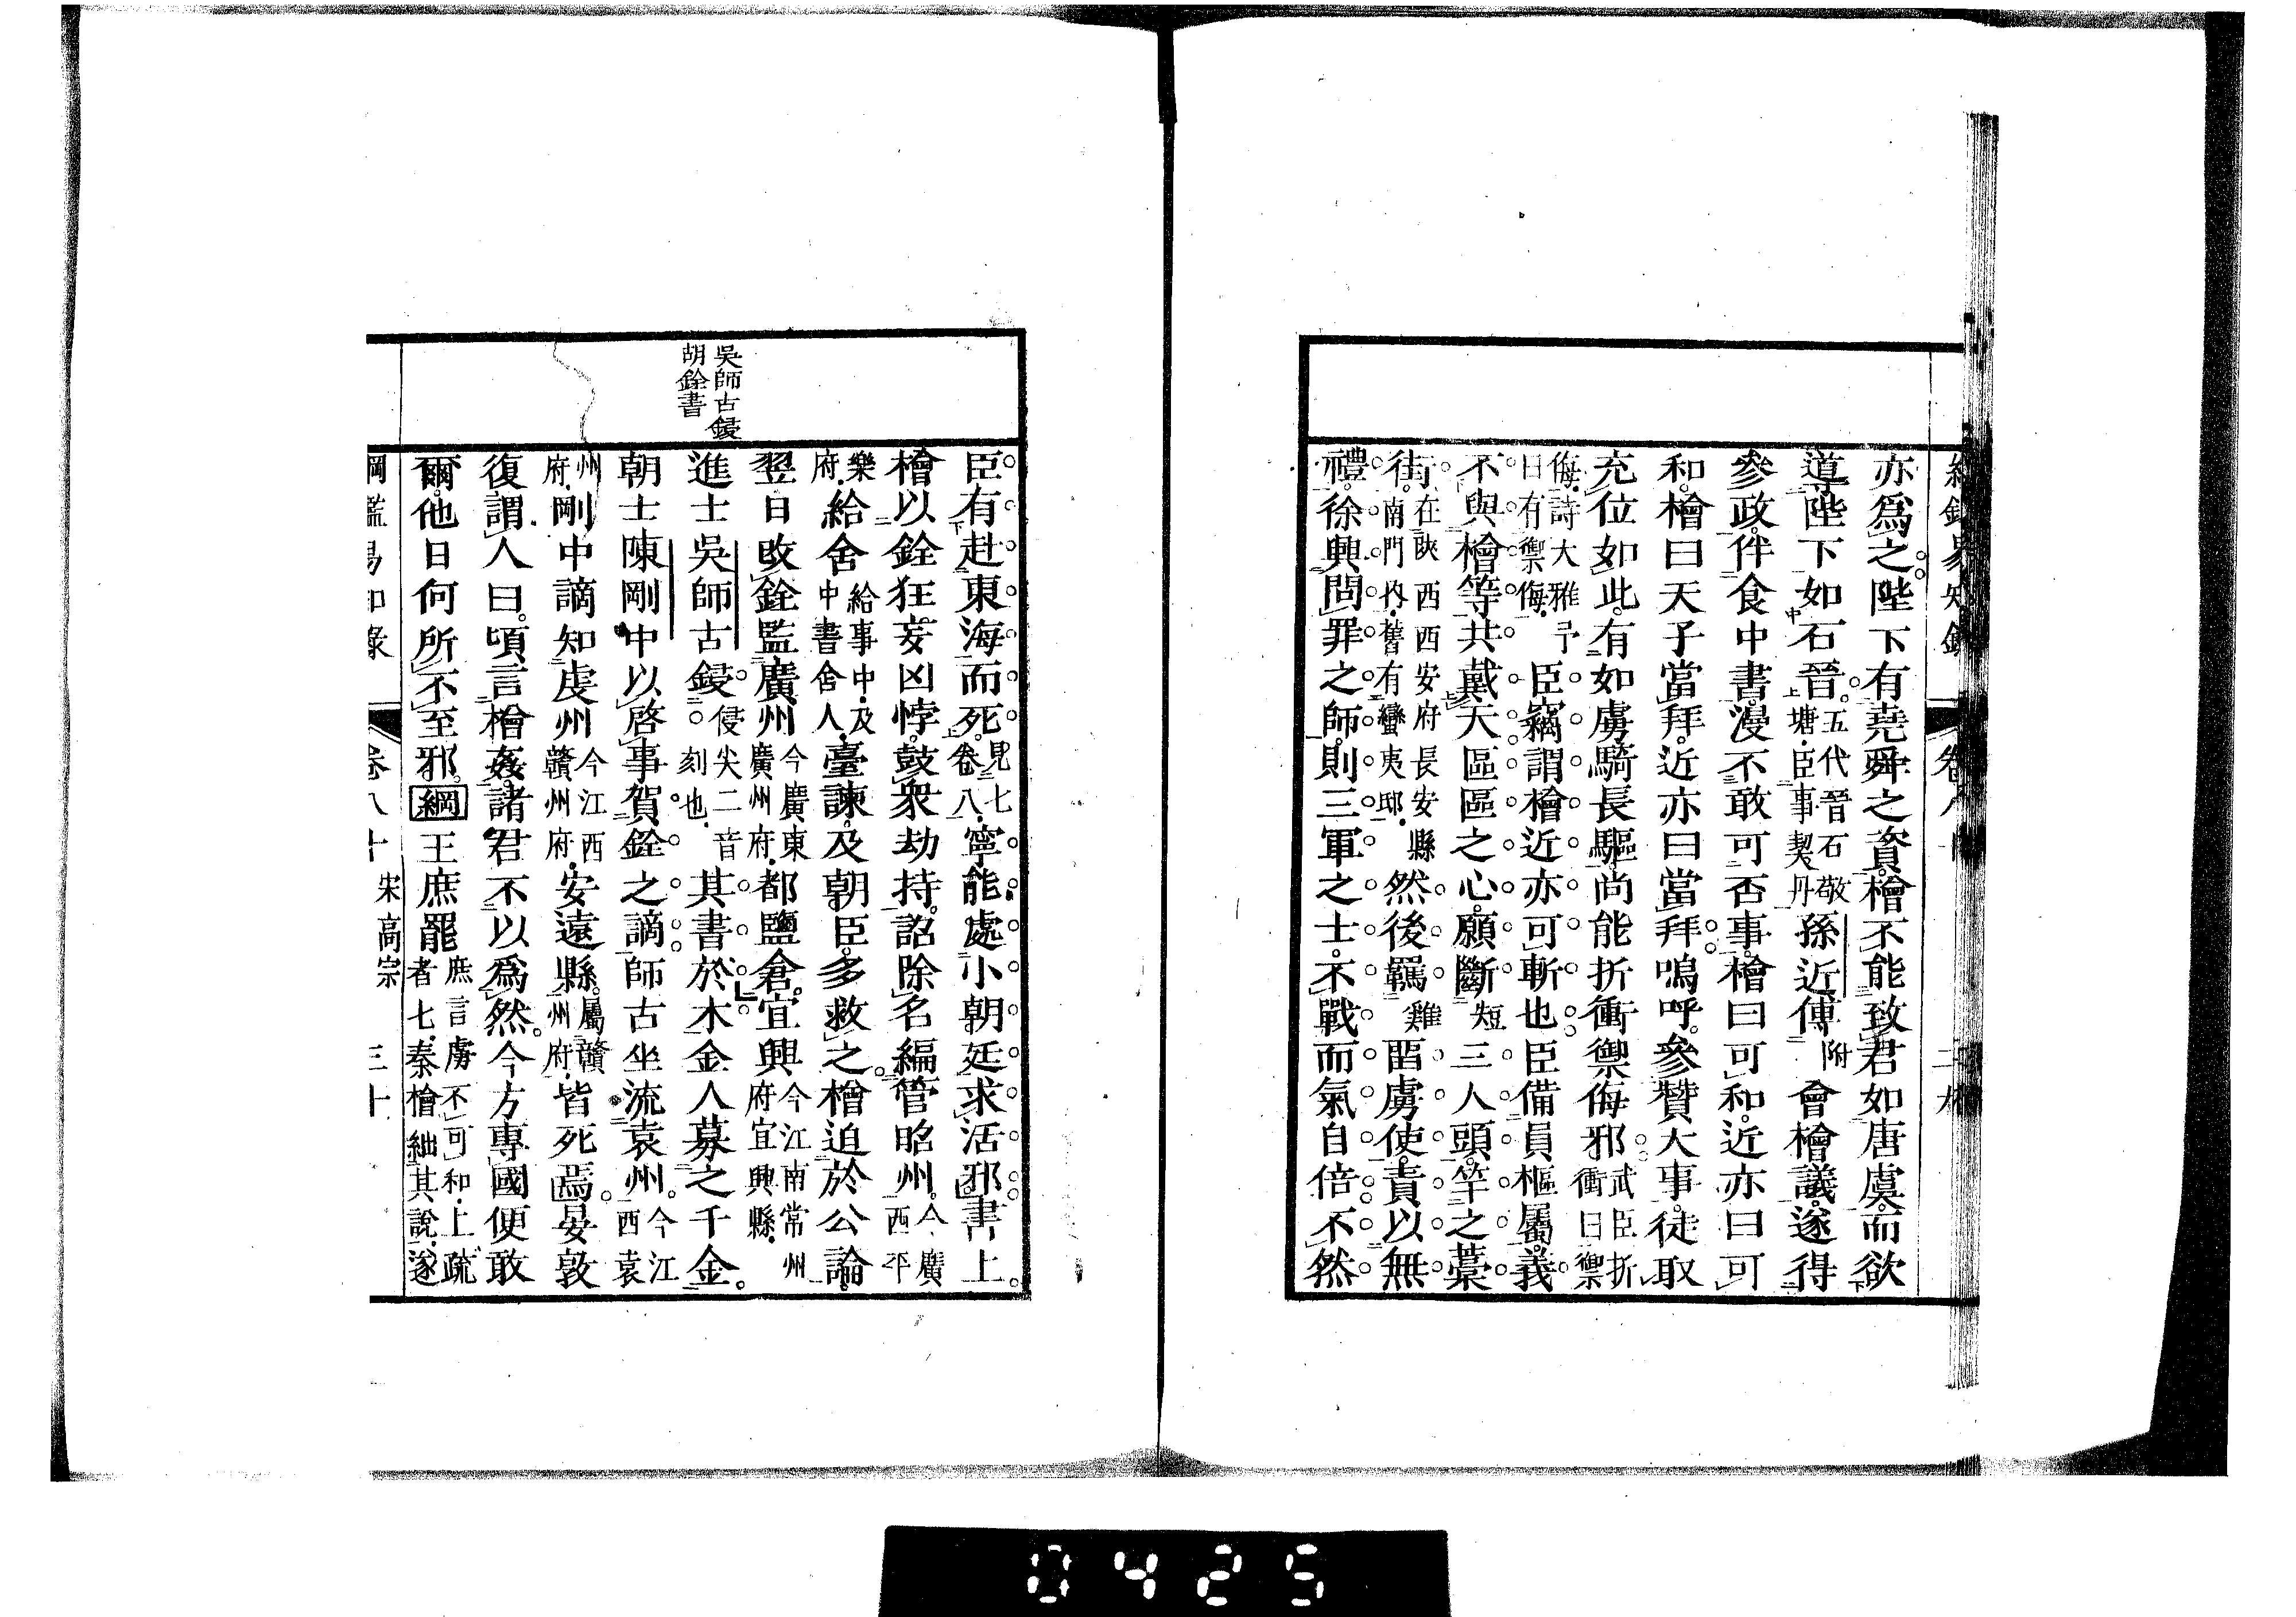 亦爲之陛下有堯舜之資檜不能致君如唐虞而欲
導陛下如石晉五代晉石敬塘臣事契丹孫近傅附會檜議遂得
參政伴食中書漫不敢可否事檜曰可和近亦曰可
和檜曰天子當拜近亦曰當拜嗚呼參贊大事徒取
充位如此有如虜騎長驅尚能折衝禦侮邪武臣折衝曰禦
侮詩大雅予曰有禦侮臣竊謂檜近亦可斬也臣備員樞屬義
不與檜等共戴天區區之心願斷短三人頭竿之藁
街在陝西西安府長安縣南門內舊有蠻夷邸然後羈雞畱虜使責以無
禮徐興問罪之師則三軍之士不戰而氣自倍不然
卷八十
吳師古鋟
胡銓書
臣有赴東海而死見七卷八寧能處小朝廷求活邪書上
檜以銓狂妄凶悖鼓衆劫持詔除名編管昭州今廣西平
樂府給舍給事中及中書舍人臺諫及朝臣多救之檜迫於公論
翌日改銓監廣州今廣東廣州府都鹽倉宜興今江南常州府宜興縣
進士吳師古鋟侵尖二音刻也其書於木金人募之千金
朝士陳剛中以啓事賀銓之謫師古坐流袁州今江西袁
州府剛中謫知虔州今江西贛州府安遠縣屬贛州府皆死焉晏敦
復謂人曰頃言檜姦諸君不以爲然今方專國便敢
爾他日何所不至邪綱王庶罷庶言虜不可和上疏者七秦檜絀其說遂
綱鑑易知錄 卷八十 宋高宗 三十
0425